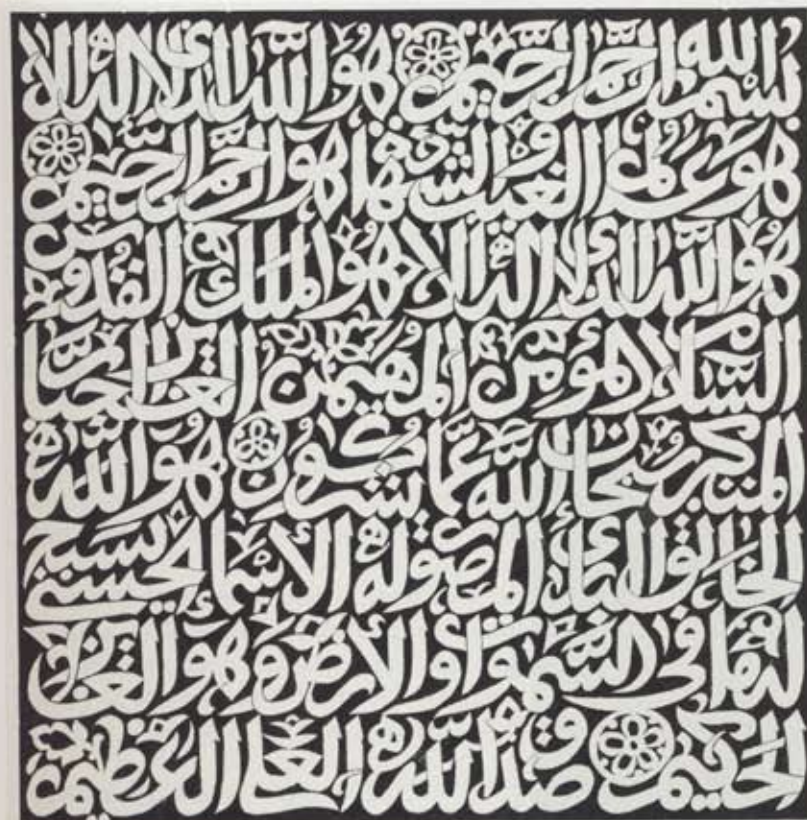 بسم الله الرحمن الرحيم هو الله الذي لا إله إلا
هو عالم الغيب والشهادة هو الرحمن الرحيم
هو الله الذي لا إله إلا هو الملك القدوس
السلام المؤمن المهيمن العزيز الجبار
المتكبر سبحان الله عما يشركون هو الله
الخالق البارئ المصور له الأسماء الحسنى يسبح
له ما في السموات والأرض وهو العزيز
الحكيم صدق الله العلي العظيم